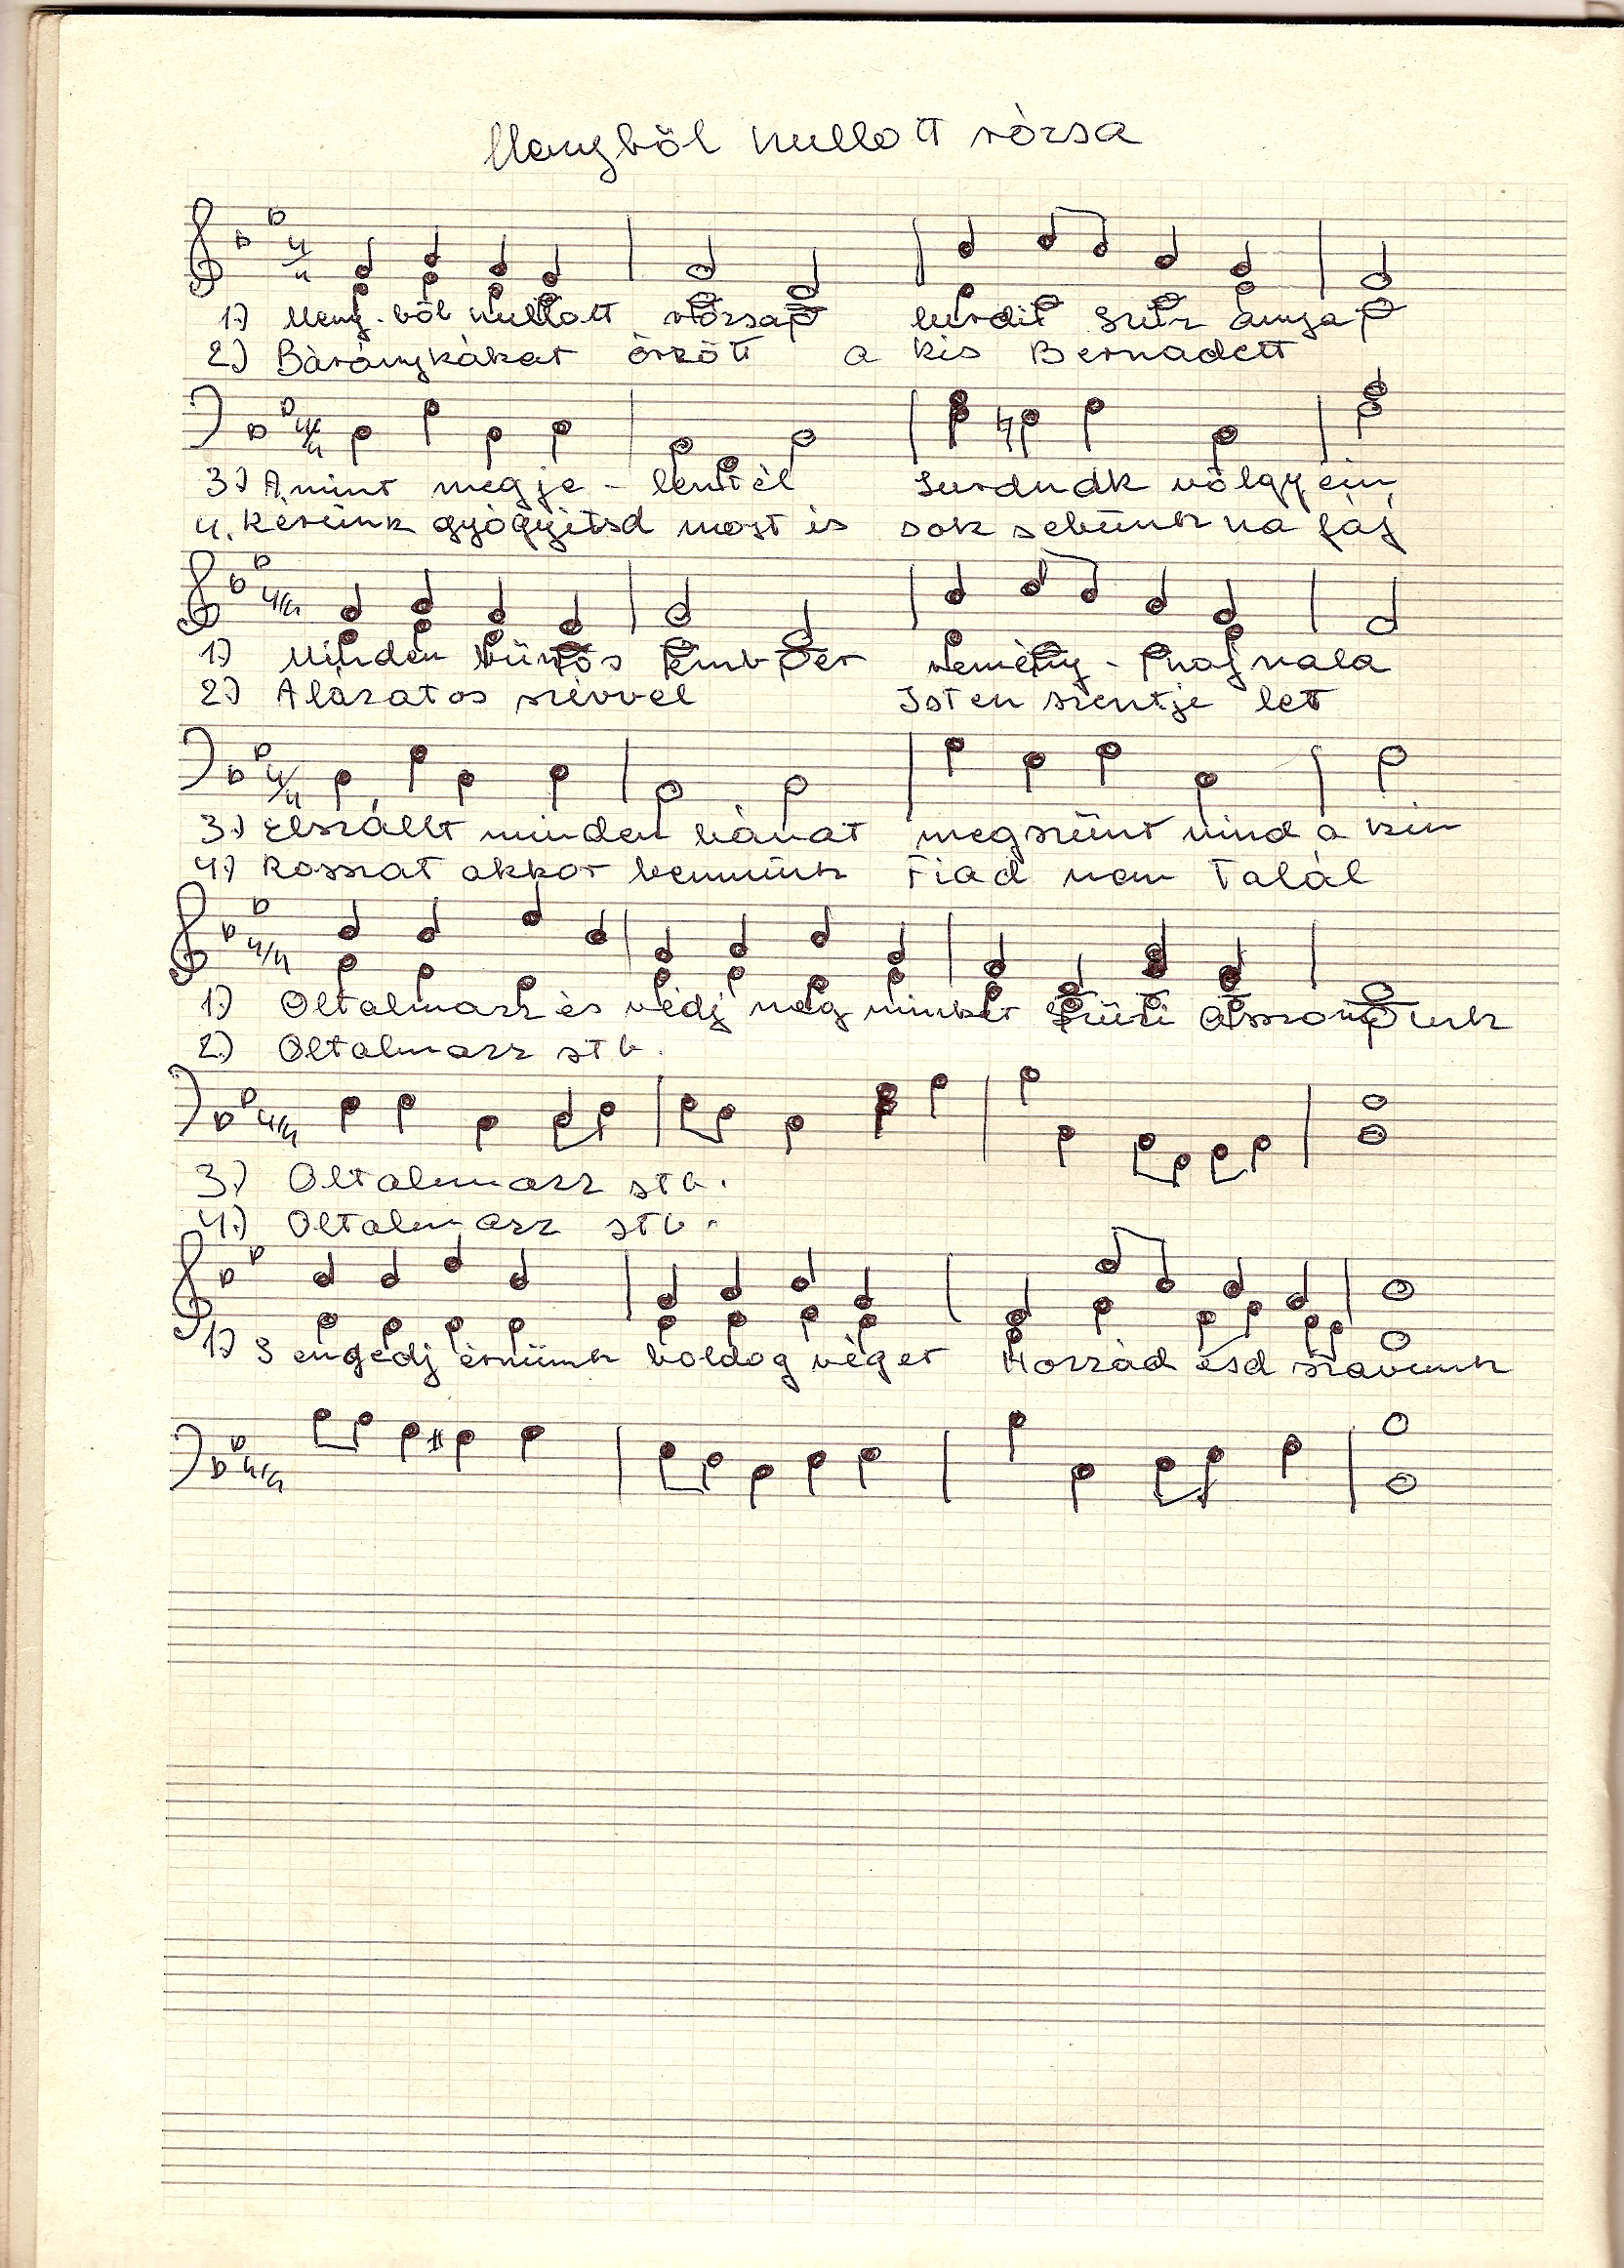 Menyből hullott rózsa
4/4
1.) Meny-ből hullott rózsa lurdi Szűz anya
2.) Báránykákat őrzött a kis Bernadett
4/4
3.) Amint megje-lentél Lurdnak völgyein
4. Kérünk gyógyítsd most is sok sebünk ha fáj
4/4
1.) Minden bűnös ember remény-hajnala
2.) Alázatos szívvel Isten szentje lett
4/4
3.) Elszállt minden bánat megszűnt mind a kín
4.) Rosszat akkor bennünk Fiad nem talál
4/4
1.) Oltalmazz és védj meg minket Szűzi Asszonyunk
2.) Oltalmazz stb.
4/4
3.) Oltalmazz stb.
4.) Oltalmazz stb.
1.) S engedj érnünk boldog véget Hozzád esd szavunk
4/4